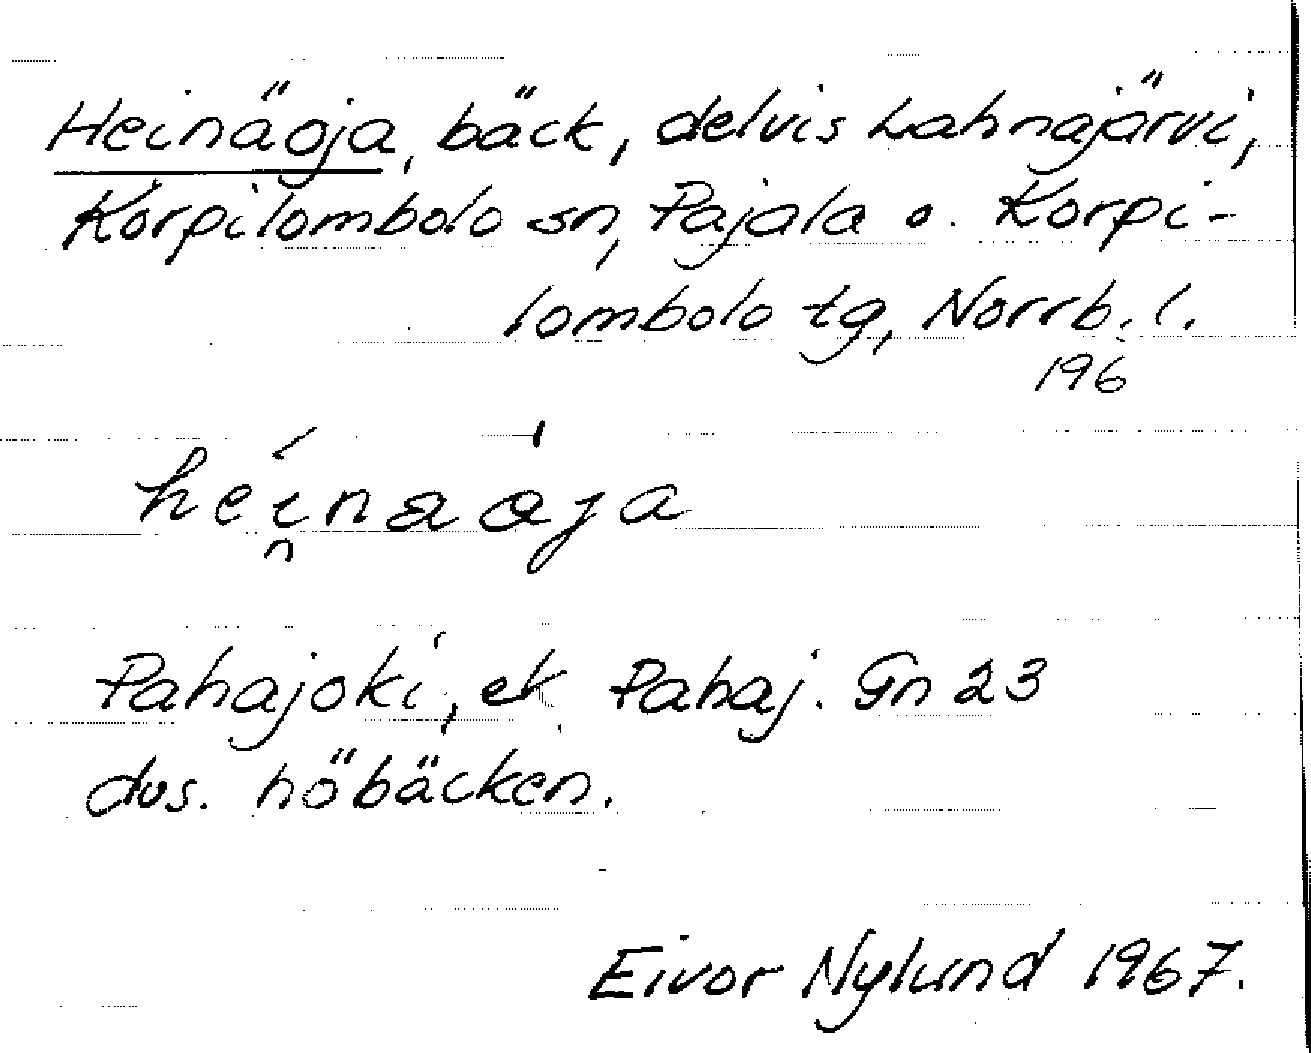 Heinäoja, bäck, delvis Lahnajärvi,
Korpilombolo sn, Pajala o. Korpi-
lombolo tg, Norrb. l.
196
héi̯naòja
Pahajoki, ek. Pahaj. Gn 23
dvs. höbäcken.
Eivor Nylund 1967.